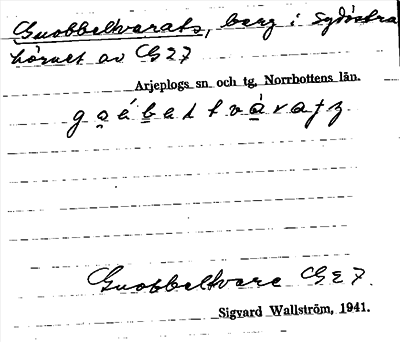 Guobbeltvarats, berg i sydöstra
hörnet av G27
Arjeplogs sn. och tg, Norrbottens län.
Guobbeltvare G27.
Sigvard Wallström, 1941.